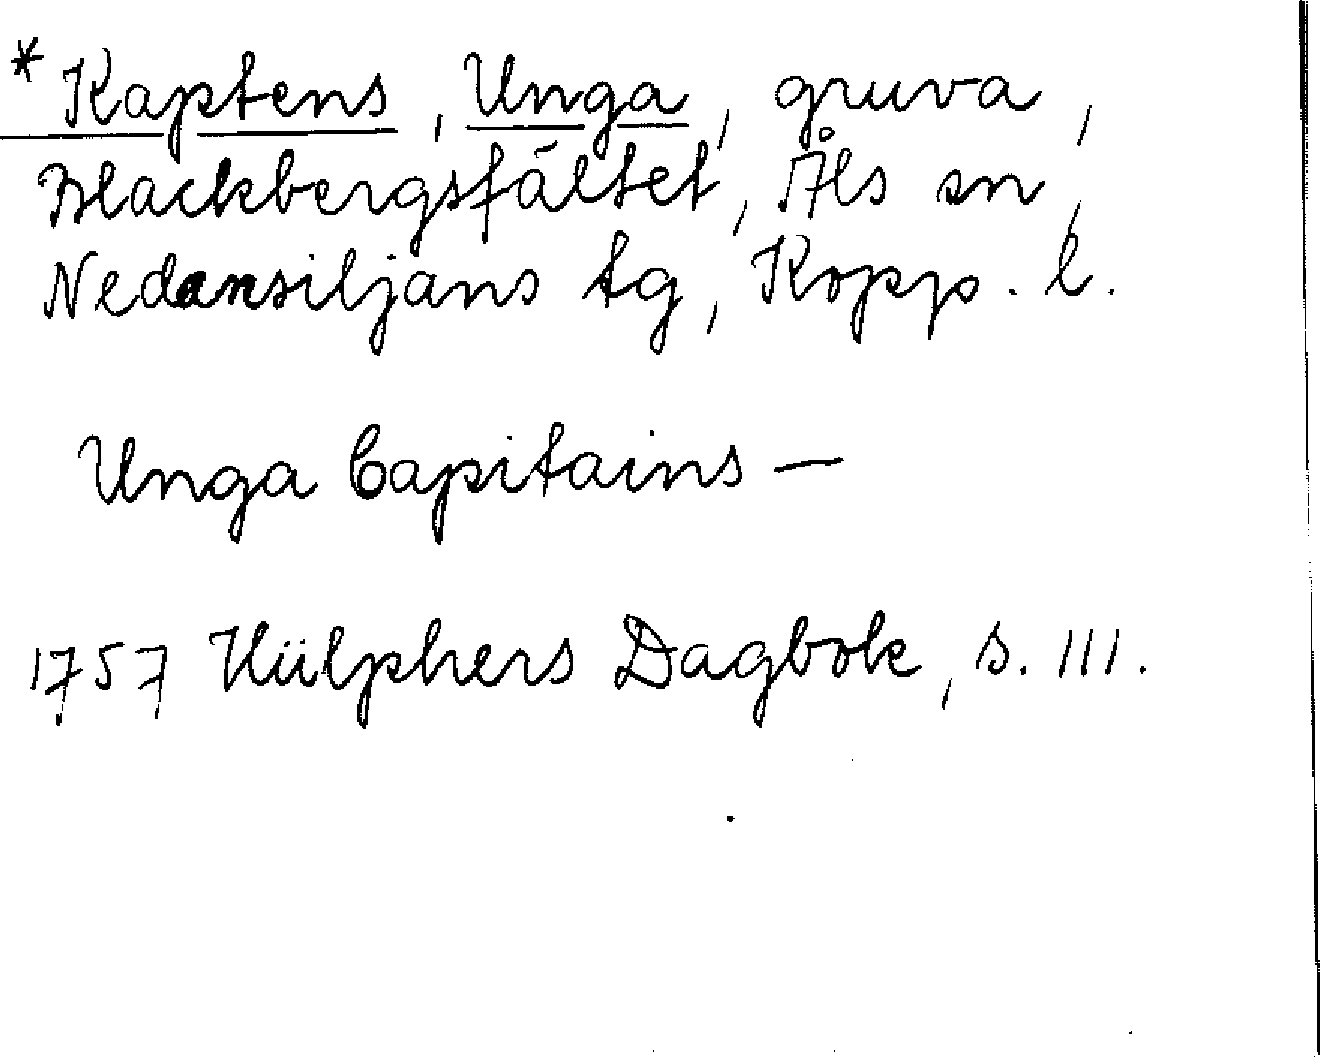 *Kaptens, Unga, gruva,
Blackbergsfältet, Åls sn,
Nedansiljans tg, Kopp. l.
Unga Capitains —
1757 Hülphers Dagbok, s. 111.